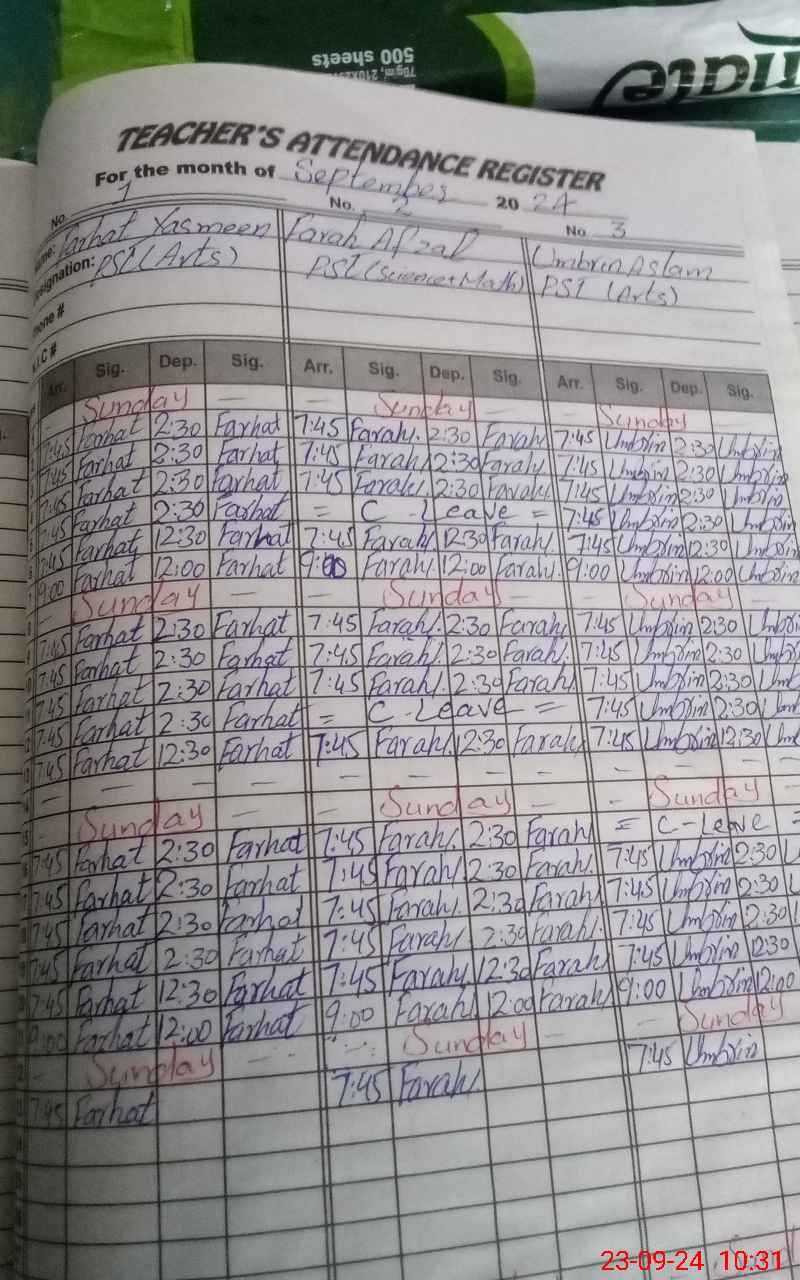 500 sheets
70gm, 210x2
TEACHER'S ATTENDANCE REGISTER
For the month of September 20 24
No. 1 No. 2 No. 3
Name: Farhat Yasmeen Farah Afzal Umbrin Aslam
Designation: PST (Arts) PST (Science+Math) PST (Arts)
Phone #
Arr. Sig. Dep. Sig. Arr. Sig. Dep. Sig. Arr. Sig. Dep. Sig.
- Sunday - - Sunday - - Sunday -
7:45 Farhat 2:30 Farhat 7:45 Farah. 2:30 Farah 7:45 Umbrin 2:30 Umbrin
7:45 Farhat 2:30 Farhat 7:45 Farah 2:30 Farah 7:45 Umbrin 2:30 Umbrin
7:45 Farhat 2:30 Farhat 7:45 Farah 2:30 Farah 7:45 Umbrin 2:30 Umbrin
7:45 Farhat 2:30 Farhat = C-Leave = 7:45 Umbrin 2:30 Umbrin
7:45 Farhat 12:30 Farhat 7:45 Farah 12:30 Farah 7:45 Umbrin 12:30 Umbrin
9:00 Farhat 12:00 Farhat 9:00 Farah 12:00 Farah 9:00 Umbrin 12:00 Umbrin
- Sunday - - Sunday - - Sunday -
7:45 Farhat 2:30 Farhat 7:45 Farah 2:30 Farah 7:45 Umbrin 2:30 Umbri
7:45 Farhat 2:30 Farhat 7:45 Farah 2:30 Farah 7:45 Umbrin 2:30 Umbri
7:45 Farhat 2:30 Farhat 7:45 Farah 2:30 Farah 7:45 Umbrin 2:30 Umb
7:45 Farhat 2:30 Farhat = C-Leave = 7:45 Umbrin 2:30 Umb
7:45 Farhat 12:30 Farhat 7:45 Farah 12:30 Farah 7:45 Umbrin 12:30 Um
- - - - - - - - - - -
- Sunday - - Sunday - - Sunday -
7:45 Farhat 2:30 Farhat 7:45 Farah 2:30 Farah = C-Leave =
7:45 Farhat 2:30 Farhat 7:45 Farah 2:30 Farah 7:45 Umbrin 2:30 U
7:45 Farhat 2:30 Farhat 7:45 Farah 2:30 Farah 7:45 Umbrin 2:30 U
7:45 Farhat 2:30 Farhat 7:45 Farah 2:30 Farah 7:45 Umbrin 2:30 U
7:45 Farhat 12:30 Farhat 7:45 Farah 12:30 Farah 7:45 Umbrin 12:30
9:00 Farhat 12:00 Farhat 9:00 Farah 12:00 Farah 9:00 Umbrin 12:00
- Sunday - - Sunday - - Sunday
7:45 Farhat 7:45 Farah 7:45 Umbrin
23-09-24 10:31